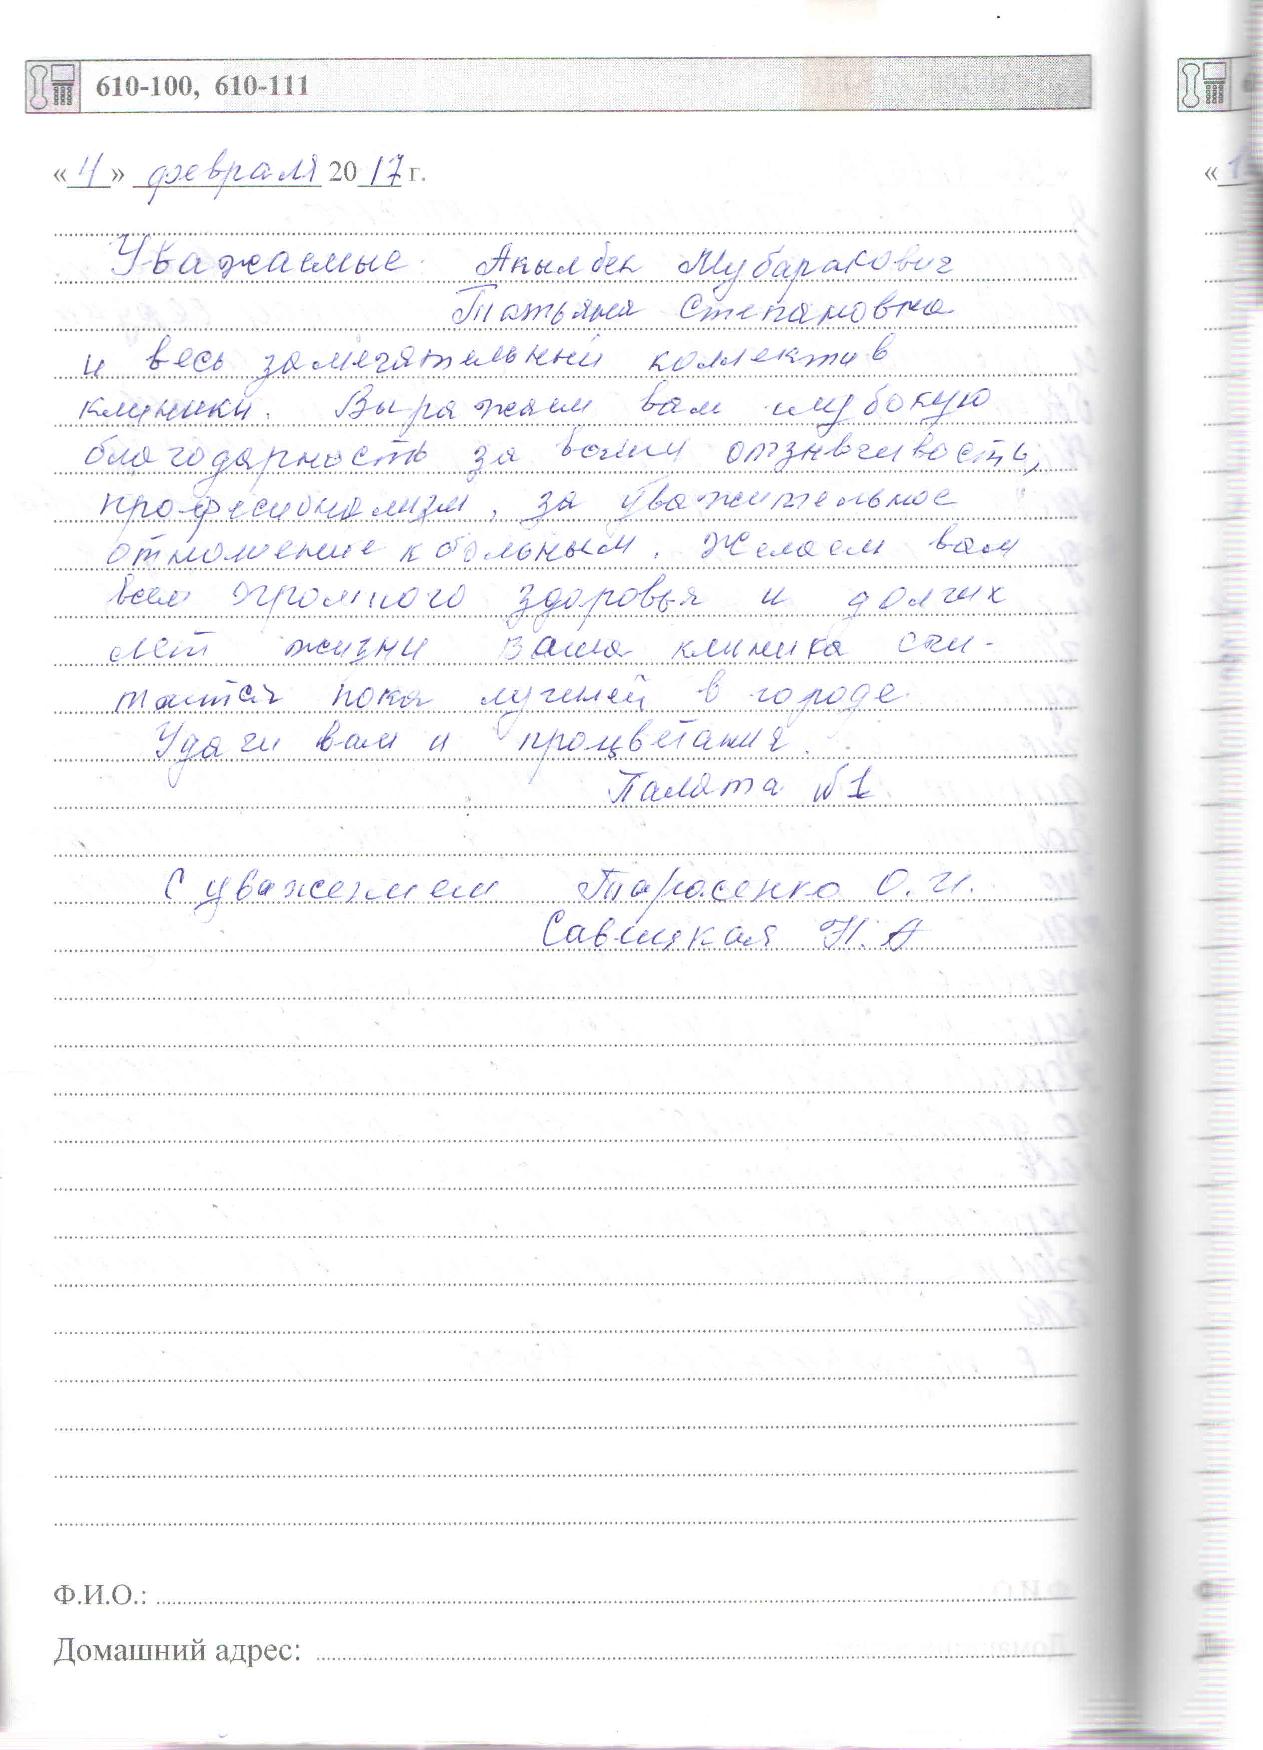 610-100, 610-111
«4» февраля 2017 г.
Уважаемые Акылбек Мубаракович
Татьяна Степановна
и весь замечательный коллектив
клиники. Выражаем вам глубокую
благодарность за вашу отзывчивость,
професионализм, за уважительное
отношение к больным. Желаем вам
всем огромного здоровья и долгих
лет жизни Ваша клиника счи-
тается пока лучшей в городе.
Удачи вам и процветания.
Палата №1
С уважением Тарасенко О.И.
Савицкая Н.А
Ф.И.О.:
Домашний адрес: